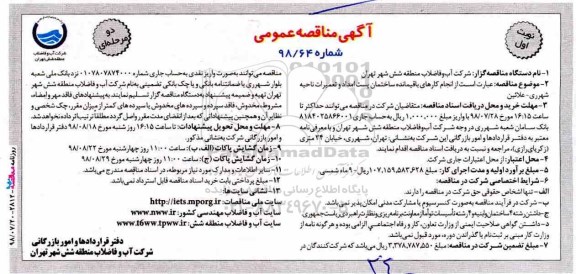 آگهی مناقصه عمومی
شماره ۹۸/۶۴
نوبت اول
دو مرحله‌ای
شرکت آب و فاضلاب منطقه شش تهران
۱- نام دستگاه مناقصه گزار: شرکت آب و فاضلاب منطقه شش شهر تهران
۲- موضوع مناقصه: عبارت است از انجام کارهای باقیمانده ساختمان پست امداد و تعمیرات ناحیه شهرری - علائین
۳- مهلت خرید و محل دریافت اسناد مناقصه: متقاضیان شرکت در مناقصه می‌توانند حداکثر تا ساعت ۱۶:۱۵ مورخ ۹۸/۰۷/۲۸ با واریز مبلغ ۱,۰۰۰,۰۰۰ ریال به حساب جاری
بانک سامان شعبه شهرری در وجه شرکت آب و فاضلاب منطقه شش شهر تهران و با معرفی نامه
معتبر به دفتر قراردادها و امور بازرگانی این شرکت به‌نشانی: تهران، شهرری، خیابان ۲۴ متری
مراجعه و نسبت به دریافت اسناد مناقصه اقدام نمایند.
۴- محل اعتبار: از محل اعتبارات جاری شرکت.
۵- مبلغ برآورد اولیه و مدت اجرای کار: مبلغ ۱۰۷,۱۵۹,۵۸۳,۶۲۸ ریال - ۹ ماه شمسی
۶- شرایط اختصاصی شرکت در مناقصه:
الف- تنها اشخاص حقوقی حق شرکت در مناقصه را دارند.
ب- شرکت در فرآیند مناقصه به صورت کنسرسیوم یا مشارکت مدنی امکان پذیر نمی‌باشد.
د- داشتن گواهی صلاحیت ایمنی از وزارت تعاون، کار و رفاه اجتماعی الزامی بوده و هرگونه نامه از
وزارت کار مبنی بر ثبت نام یا گذراندن دوره، مورد قبول نمی‌باشد.
۷- مبلغ تضمین شرکت در مناقصه: ۳,۳۷۸,۷۸۷,۵۵۰ ریال می‌باشد که شرکت کنندگان در
مناقصه می‌توانند به صورت واریز نقدی به حساب جاری شماره ۰۱۰۷۸۰۷۸۷۴۰۰۰ نزد بانک ملی شعبه
بلوار شهرری یا ضمانتنامه بانکی و یا چک بانکی تضمینی به نام شرکت آب و فاضلاب منطقه شش شهر
تهران تهیه و ضمیمه پیشنهاد به دستگاه مناقصه گزار تسلیم نمایند. به پیشنهادهای فاقد مهر و امضاء،
مشروط، مخدوش، فاقد سپرده و سپرده های مخدوش یا سپرده های کمتر از میزان مقرر، چک شخصی و
نظایر آن و همچنین پیشنهاداتی که بعد از انقضای مدت مقرر واصل گردد مطلقا ترتیب اثر داده نخواهد شد.
۸- مهلت و محل تحویل پیشنهادات: تا ساعت ۱۶:۱۵ روز شنبه مورخ ۹۸/۰۸/۱۸ دفتر قراردادها
و امور بازرگانی شرکت به‌نشانی مذکور.
۹- زمان گشایش پاکات (الف): ساعت ۱۱:۰۰ روز چهارشنبه مورخ ۹۸/۰۸/۲۲
۱۰- زمان گشایش پاکات (ج): ساعت ۱۱:۰۰ روز چهارشنبه مورخ ۹۸/۰۸/۲۹
۱۱- سایر اطلاعات و مدارک مورد نیاز مربوطه، در اسناد مناقصه مندرج می‌باشد.
۱۲- مبلغ پرداختی بابت خرید اسناد مناقصه قابل استرداد نمی‌باشد.
۱۳- نشانی سایت ها:
سایت ملی مناقصات: http://iets.mporg.ir
سایت آب و فاضلاب مهندسی کشور: www.nww.ir
سایت آب و فاضلاب منطقه شش: www.t6ww.tpww.ir
دفتر قراردادها و امور بازرگانی
شرکت آب و فاضلاب منطقه شش شهر تهران